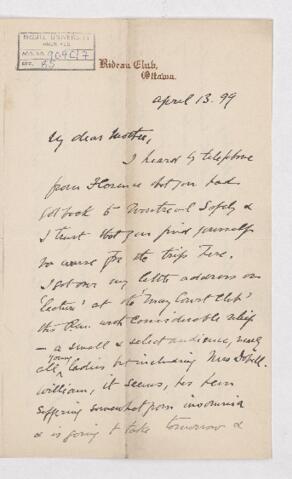 McGILL UNIVERSITY
ARCHIVES
ACC. NO. 904C/7
REF. 85
Rideau Club,
Ottawa.
April 13. 99
My dear Mother,
I heard by telephone
from Florence that you had
got back to Montreal safely &
I trust that you find yourself
no worse for the trip here.
I got over my little address or
"lecture" at the "May Court Club"
this p.m. with considerable relief
– a small & select audience, nearly
all young ladies but including Miss
William, it seems, has been
suffering somewhat from insomnia
& is going to take tomorrow &